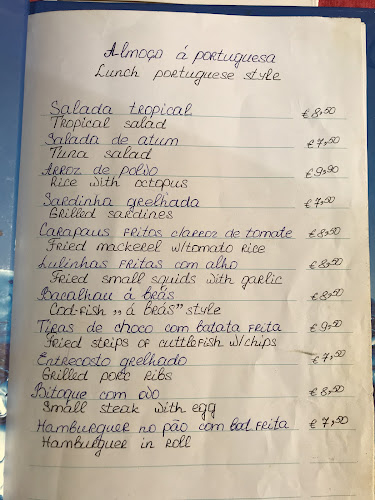 Almoço á portuguesa
Lunch portuguese style
Salada tropical € 8,50
Tropical salad
Salada de atum € 7,50
Tuna salad
Arroz de polvo € 9,90
Rice with octopus
Sardinha grelhada € 7,50
Grilled sardines
Carapaus fritos c/arroz de tomate € 8,50
Fried mackerel w/tomato rice
Lulinhas fritas com alho € 8,50
Fried small squids with garlic
Bacalhau á brás € 8,50
Cod-fish „á brás" style
Tiras de choco com batata frita € 9,50
Fried strips of cuttlefish w/chips
Entrecosto grelhado € 7,50
Grilled porc ribs
Bitoque com ovo € 8,50
Small steak with egg
Hamburguer no pão com bat frita € 7,50
Hamburguer in roll